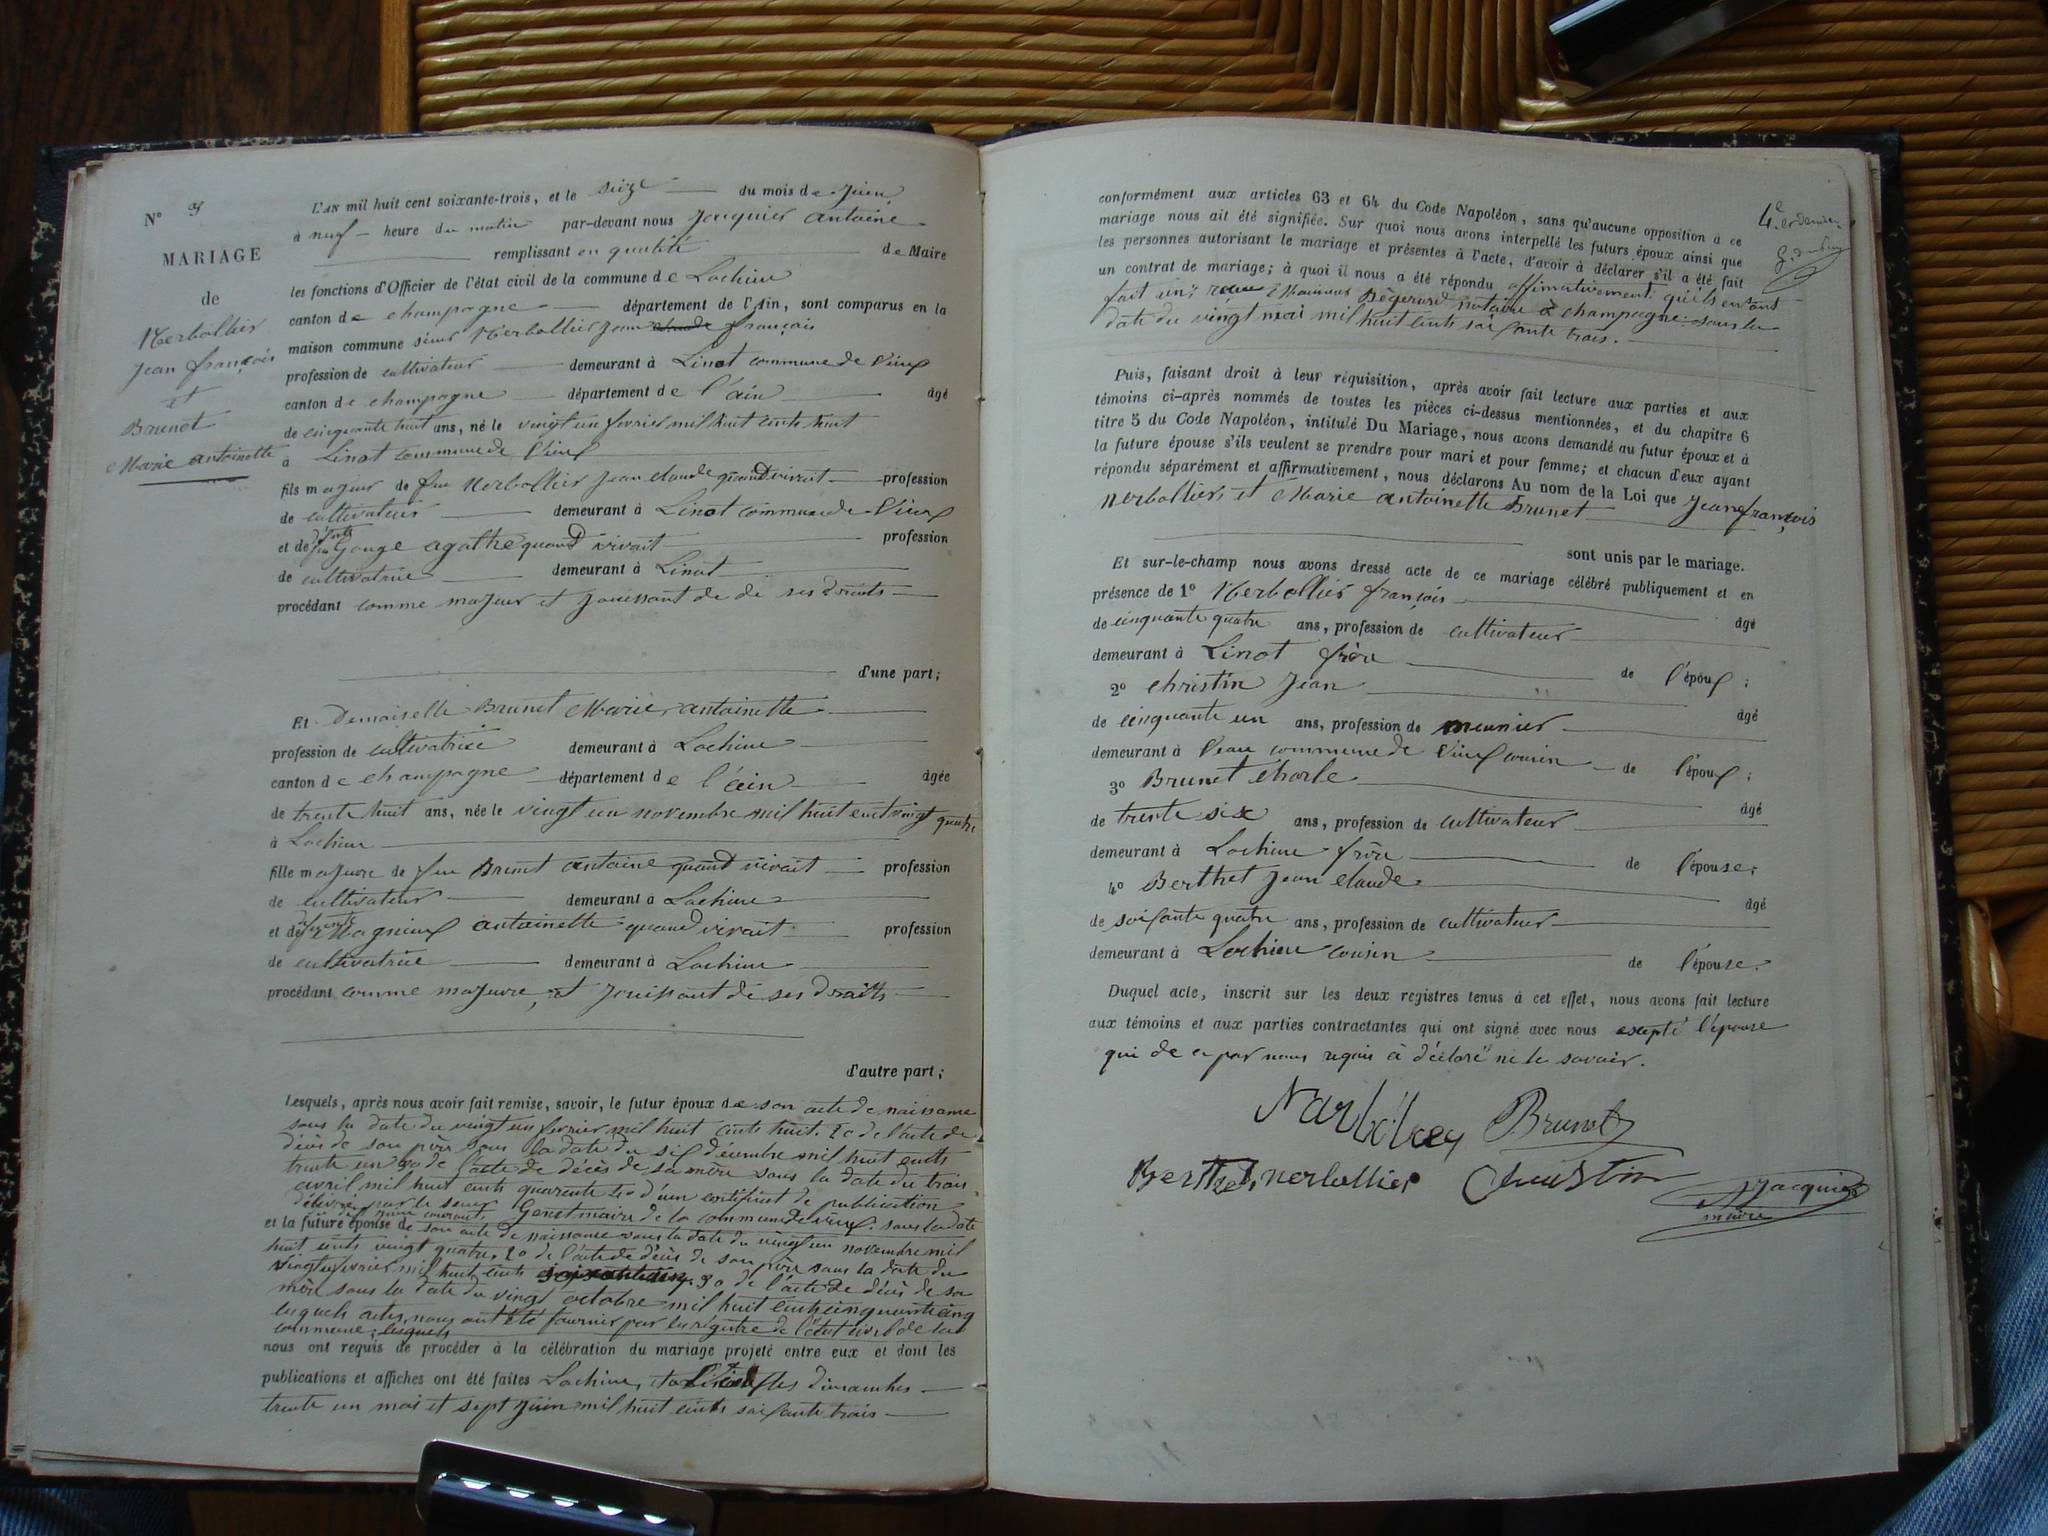 N° 3
MARIAGE
de
Nerbollier
Jean françois
et
Brunet
Marie antoinette
L'AN mil huit cent soixante-trois, et le seize du mois de Juin
à neuf heure du matin par-devant nous Jacquier antoine
remplissant en qualité de Maire
les fonctions d'Officier de l'état civil de la commune de Lochieu
canton de champagne département de l'Ain, sont comparus en la
maison commune sieur Nerbollier Jean françois
profession de cultivateur demeurant à Linot commune de Vieux
canton de champagne département de l'ain âgé
de cinquante huit ans, né le vingt un fevrier mil huit cents huit
à Linot commune de Vieux
fils majeur de feu Nerbollier Jean claude quand vivait profession
de cultivateur demeurant à Linot commune de Vieux
et de Gouge agathe quand vivait profession
de cultivatrice demeurant à Linot
procédant comme majeur et Jouissant de de ses droits
d'une part;
Et Demoiselle Brunet Marie antoinette
profession de cultivatrice demeurant à Lochieu
canton de champagne département de l'ain âgée
de trente huit ans, née le vingt un novembre mil huit cent vingt quatre
à Lochieu
fille majeure de feu Brunet antoine quand vivait profession
de cultivateur demeurant à Lochieu
et de defunte Magnieux antoinette quand vivait profession
de cultivatrice demeurant à Lochieu
procédant comme majeure, et Jouissant de ses droits
d'autre part;
Lesquels, après nous avoir fait remise, savoir, le futur époux de son acte de naissance
sous la date du vingt un fevrier mil huit cents huit. 2o de l'acte de
décès de son père sous la date du six décembre mil huit cents
trente un 3o de l'acte de décès de sa mère sous la date du trois
avril mil huit cents quarante 4o d'un certificat de publication
délivré par le sieur Genet maire de la commune de vieux. sous la date
et la future épouse de son acte de naissance sous la date du vingt un novembre mil
huit cents vingt quatre, 2o de l'acte de décès de son père sous la date du
vingt fevrier mil huit cents 3o de l'acte de décès de sa
mère sous la date du vingt octobre mil huit cents cinquante cinq
lesquels actes nous ont été fournir par les registre de l'état civil de la
commune; lesquels
nous ont requis de procéder à la célébration du mariage projeté entre eux et dont les
publications et affiches ont été faites Lochieu, les dimanches
trente un mai et sept Juin mil huit cents soixante trois
4e et dernier
conformément aux articles 63 et 64 du Code Napoléon, sans qu'aucune opposition à ce
mariage nous ait été signifiée. Sur quoi nous avons interpellé les futurs époux ainsi que
les personnes autorisant le mariage et présentes à l'acte, d'avoir à déclarer s'il a été fait
un contrat de mariage; à quoi il nous a été répondu affirmativement qu'ils en ont
fait un; notaire à champagne sous la
date du vingt mai mil huit cents soixante trois.
Puis, faisant droit à leur réquisition, après avoir fait lecture aux parties et aux
témoins ci-après nommés de toutes les pièces ci-dessus mentionnées, et du chapitre 6
titre 5 du Code Napoléon, intitulé Du Mariage, nous avons demandé au futur époux et à
la future épouse s'ils veulent se prendre pour mari et pour femme; et chacun d'eux ayant
répondu séparément et affirmativement, nous déclarons Au nom de la Loi que Jean françois
Nerbolliers et Marie antoinette Brunet
sont unis par le mariage.
Et sur-le-champ nous avons dressé acte de ce mariage célébré publiquement et en
présence de 1o Nerbollier françois âgé
de cinquante quatre ans, profession de cultivateur
demeurant à Linot frère de l'époux;
2o christin Jean âgé
de cinquante un ans, profession de meunier
demeurant à Veau commune de Vieux cousin de l'époux;
3o Brunet Charle âgé
de trente six ans, profession de cultivateur
demeurant à Lochieu frère de l'épouse;
4o Berthet Jean claude âgé
de soixante quatre ans, profession de cultivateur
demeurant à Lochieu cousin de l'épouse.
Duquel acte, inscrit sur les deux registres tenus à cet effet, nous avons fait lecture
aux témoins et aux parties contractantes qui ont signé avec nous excepté l'épouse
qui de ce par nous requis à déclaré ne le savoir.
Brunet
Berthet nerbollier Christin Jacquier
maire